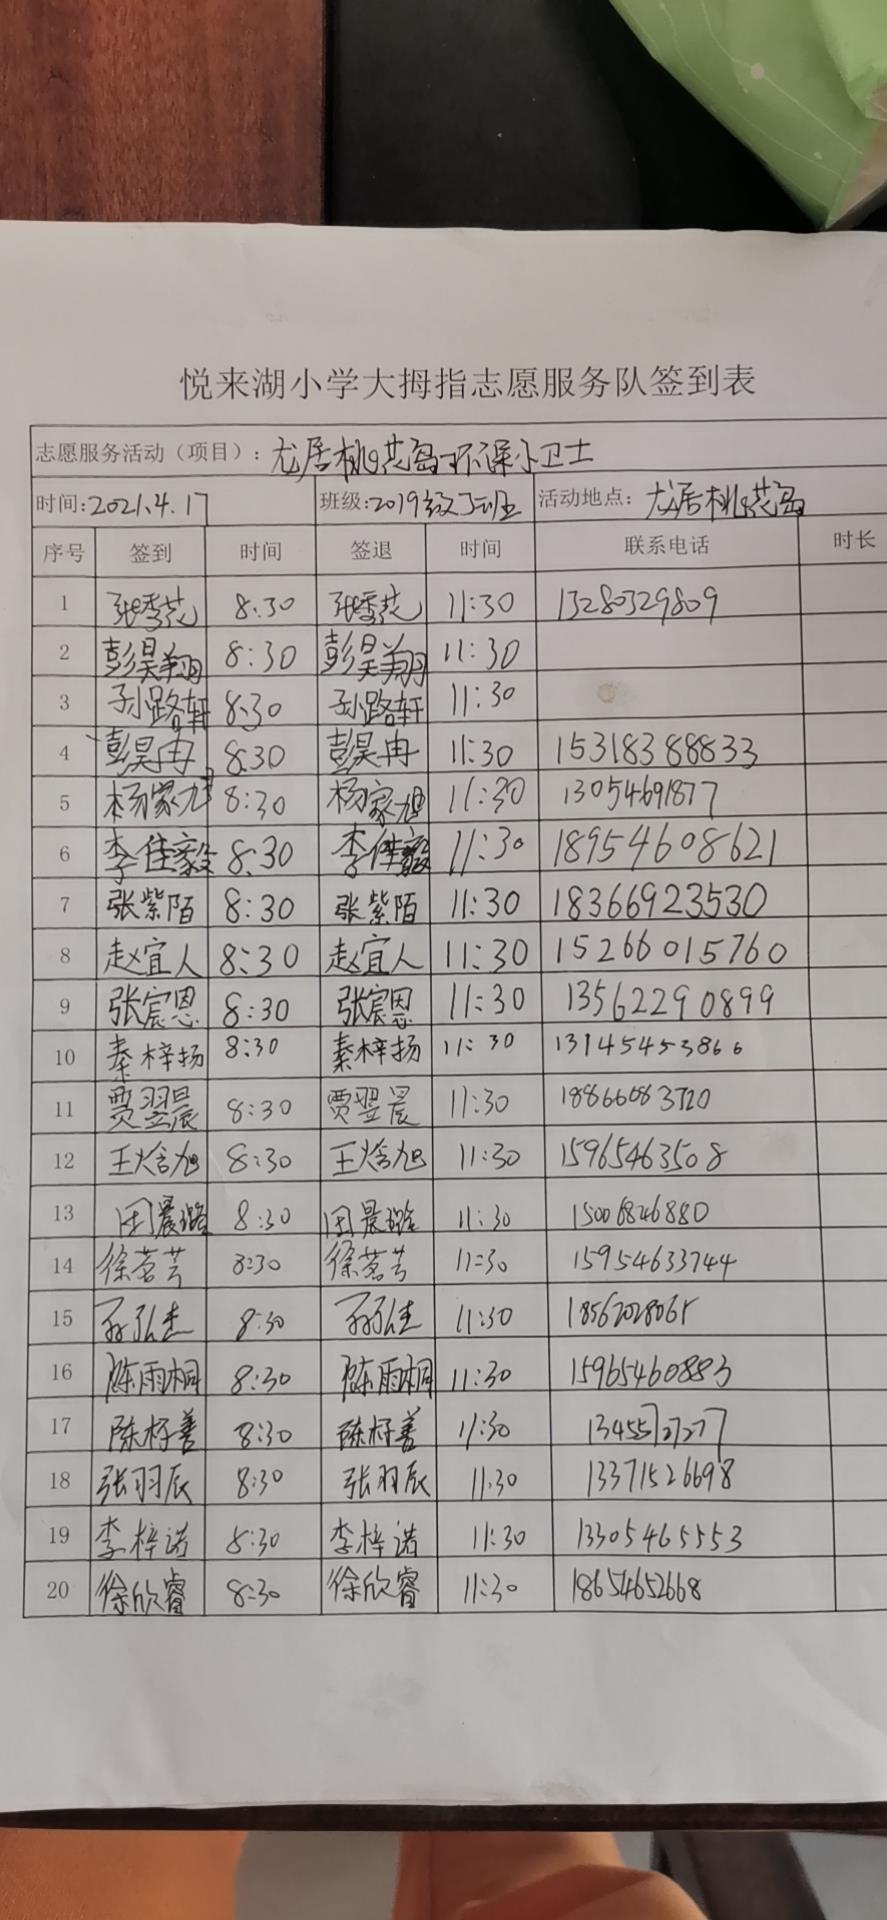 悦来湖小学大拇指志愿服务队签到表
志愿服务活动（项目）：龙居桃花岛环保小卫士
时间:2021.4.17 班级:2019级7班 活动地点：龙居桃花岛
序号 签到 时间 签退 时间 联系电话 时长
1 张秀花 8:30 张秀花 11:30 13280329809
2 彭昊翔 8:30 彭昊翔 11:30
3 孙路轩 8:30 孙路轩 11:30
4 彭昊冉 8:30 彭昊冉 11:30 15318388833
5 杨家旭 8:30 杨家旭 11:30 13054691877
6 李佳毅 8:30 李佳毅 11:30 18954608621
7 张紫陌 8:30 张紫陌 11:30 18366923530
8 赵宜人 8:30 赵宜人 11:30 15266015760
9 张宸恩 8:30 张宸恩 11:30 13562290899
10 秦梓扬 8:30 秦梓扬 11:30 13145453866
11 贾翌晨 8:30 贾翌晨 11:30
12 王焓旭 8:30 王焓旭 11:30 15965463508
13 田晨璐 8:30 田晨璐 11:30 15006846880
14 徐茗芸 8:30 徐茗芸 11:30 15954633744
15 8:30 11:30 18562028065
16 陈雨桐 8:30 陈雨桐 11:30 15965460883
17 8:30 11:30 13455727277
18 张羽辰 8:30 张羽辰 11:30 13371526698
19 李梓诺 8:30 李梓诺 11:30 13305465553
20 徐欣睿 8:30 徐欣睿 11:30 18654652668